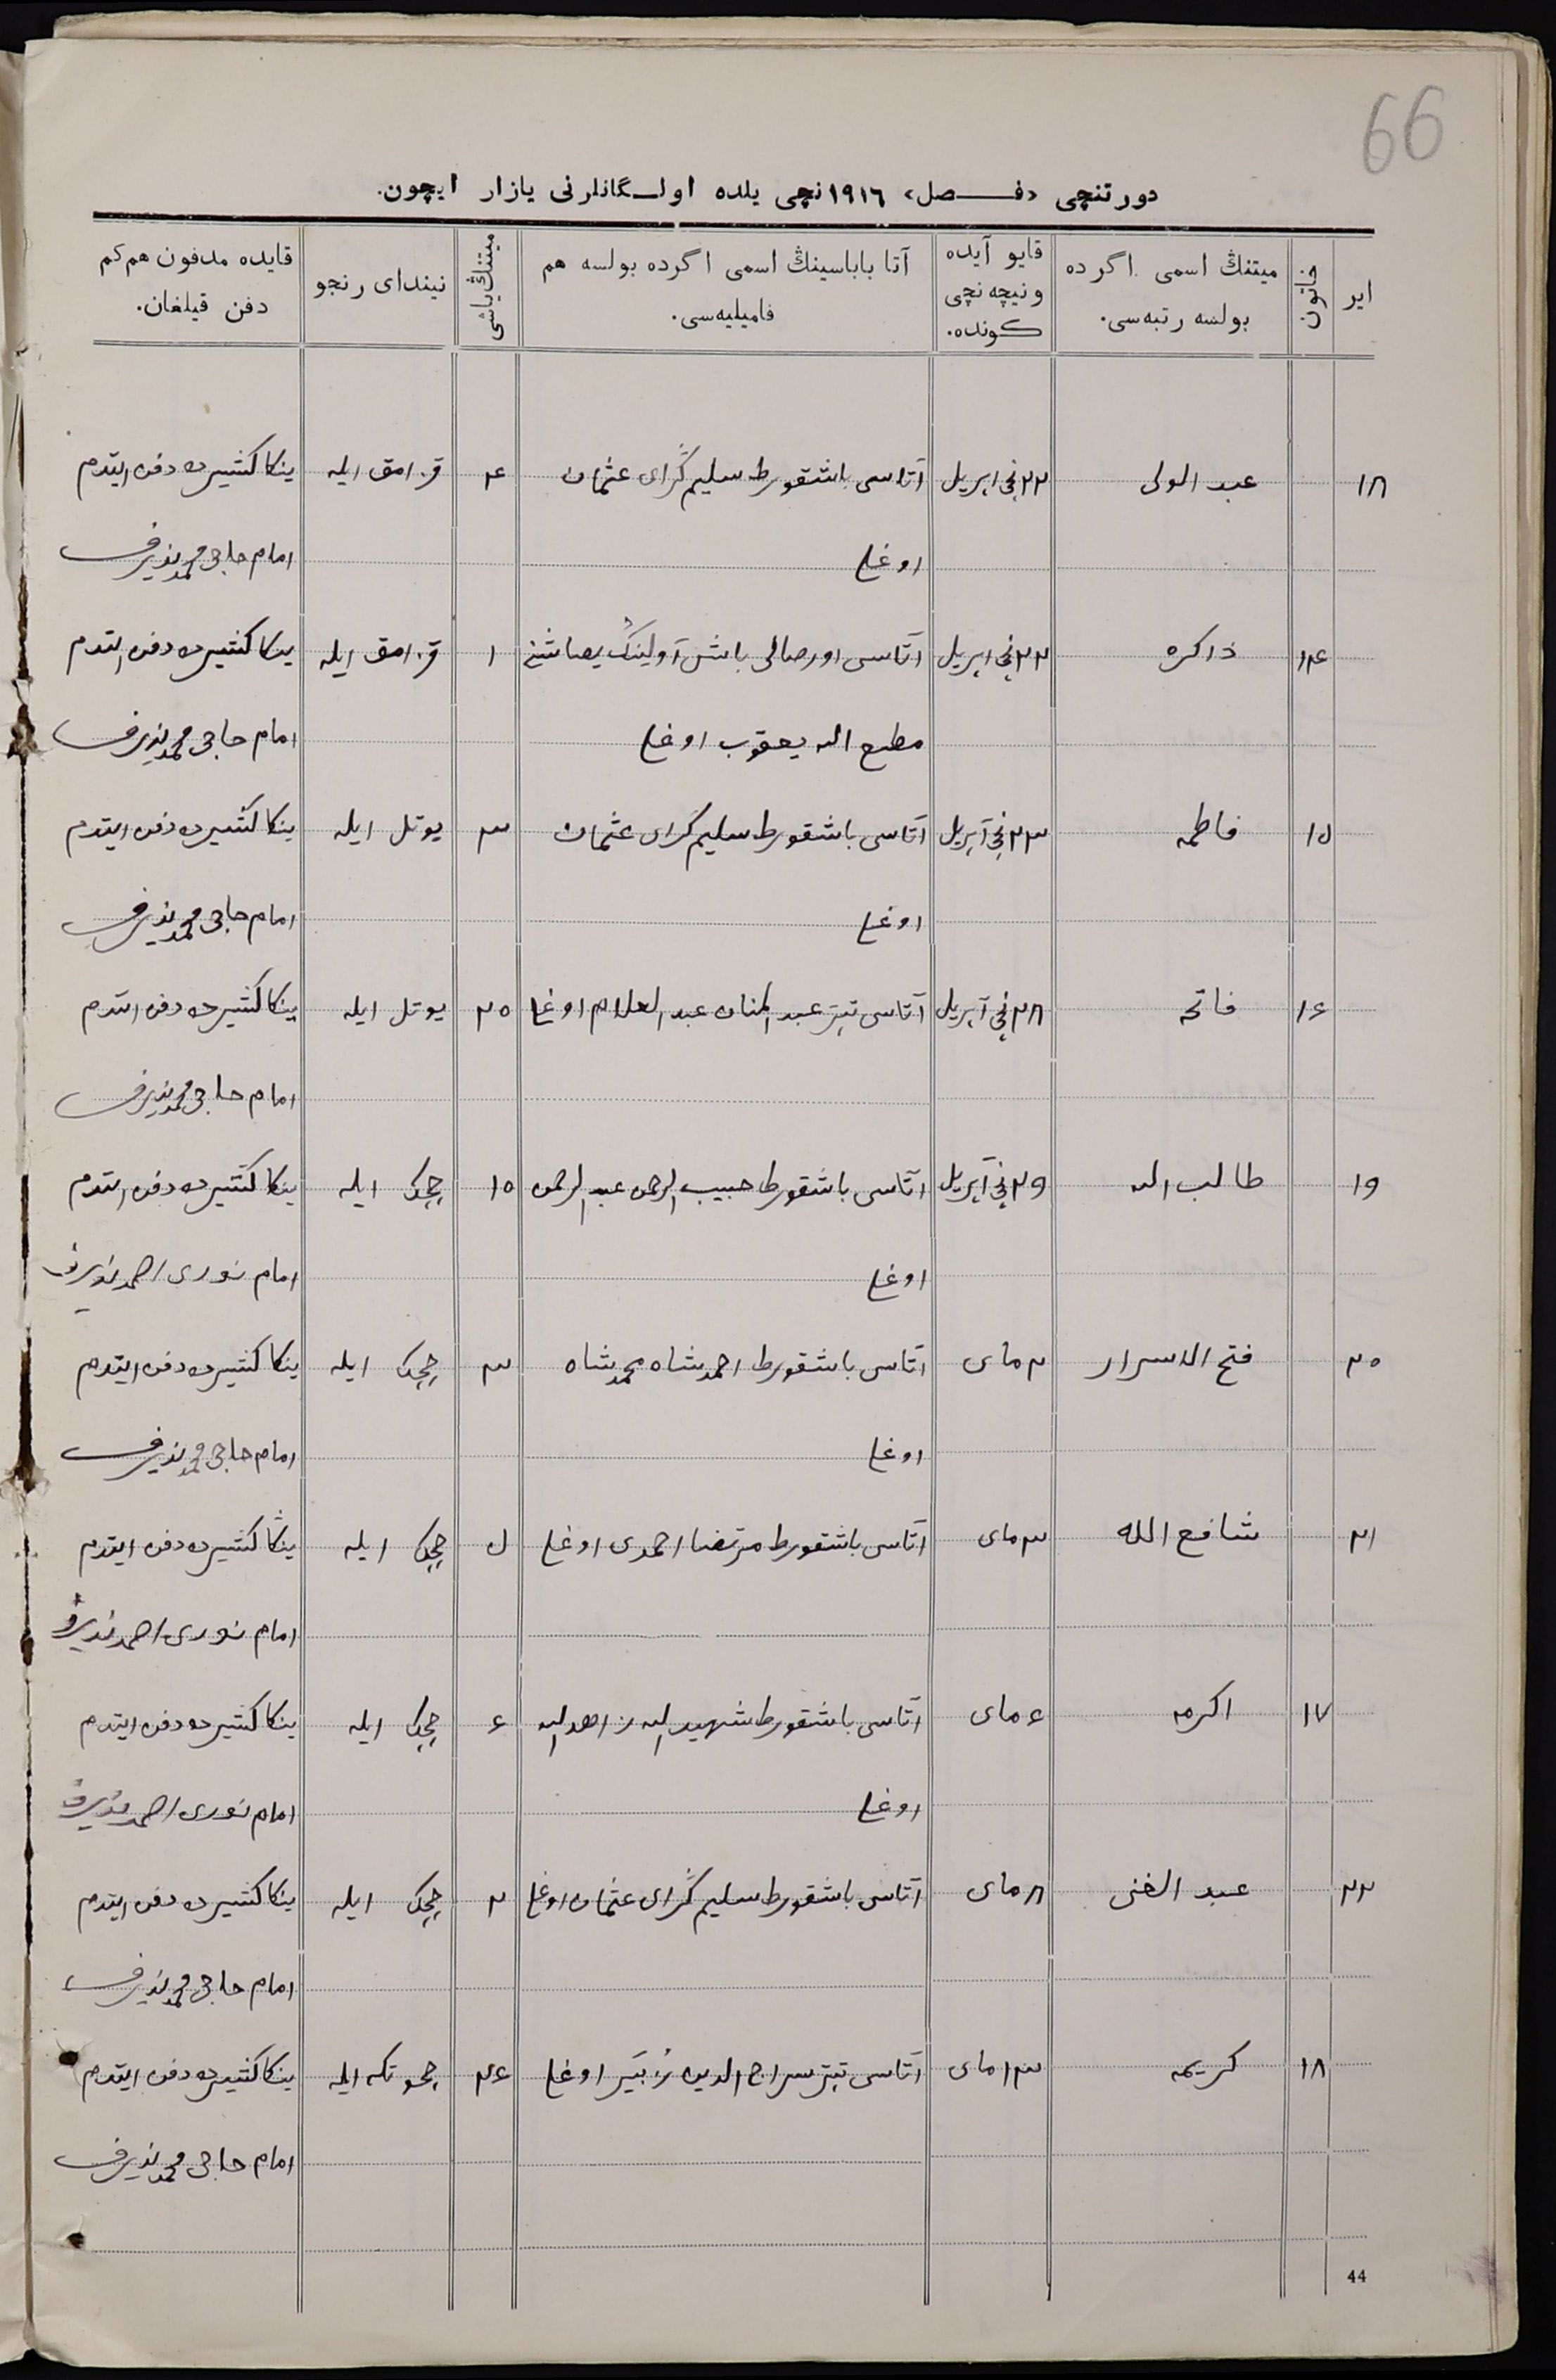 66
دورتنچی «فـصل» ١٩١٦نچی یلده اولـگانلرنی یازار ایچون.
ایر
خاتون
میتنڭ اسمی اگرده
بولسه رتبه‌سی.
قایو آیده
و نیچه نچی
کونده.
آتا باباسینڭ اسمی اگرده بولسه هم
فامیلیه‌سی.
میتنڭ یاشی
نیندای رنجو
قایده مدفون هم کم
دفن قیلغان.
١٨ عبد المولی ٢٢نچی اپریل آتاسی باشقورط سلیم گرای عثمان ٤ قزامق ایله ینکا کنتیرده دفن ایتدم
اوغلی امام حاجی محمد
١٤ ذاکره ٢٢نچی اپریل آتاسی ١ قزامق ایله ینکا کنتیرده دفن ایتدم
مطیع الله یعقوب اوغلی امام حاجی محمد
١٥ فاطمه ٢٣نچی آپریل آتاسی باشقورط سلیم گرای عثمان ٣ یوتل ایله ینکا کنتیرده دفن ایتدم
اوغلی امام حاجی محمد
١٦ فاتحه ٢٨نچی آپریل آتاسی تپتر عبد المنان عبد العلام اوغلی ٢٥ یوتل ایله ینکا کنتیرده دفن ایتدم
امام حاجی محمد
١٩ طالب الله ٢٩نچی آپریل آتاسی باشقورط حبیب الرحمن عبد الرحمن ١٥ چچک ایله ینکا کنتیرده دفن ایتدم
اوغلی امام نوری احمد
٢٠ فتح الاسرار ٢ مای آتاسی باشقورط احمدشاه محمدشاه ٣ چچک ایله ینکا کنتیرده دفن ایتدم
اوغلی امام حاجی محمد
٢١ شافع الله ٣ مای آتاسی باشقورط مرتضا احمدی اوغلی ٥ چچک ایله ینکا کنتیرده دفن ایتدم
امام نوری احمد
١٧ اکرمه ٦ مای آتاسی باشقورط شهید الله زاهد الله ٦ چچک ایله ینکا کنتیرده دفن ایتدم
اوغلی امام نوری احمد
٢٢ عبد الغنی ٨ مای آتاسی باشقورط سلیم گرای عثمان اوغلی ٢ چچک ایله ینکا کنتیرده دفن ایتدم
امام حاجی محمد
١٨ کریمه ١٣ مای آتاسی تپتر سراج الدین زبیر اوغلی ٢٦ ایله ینکا کنتیرده دفن ایتدم
امام حاجی محمد
44